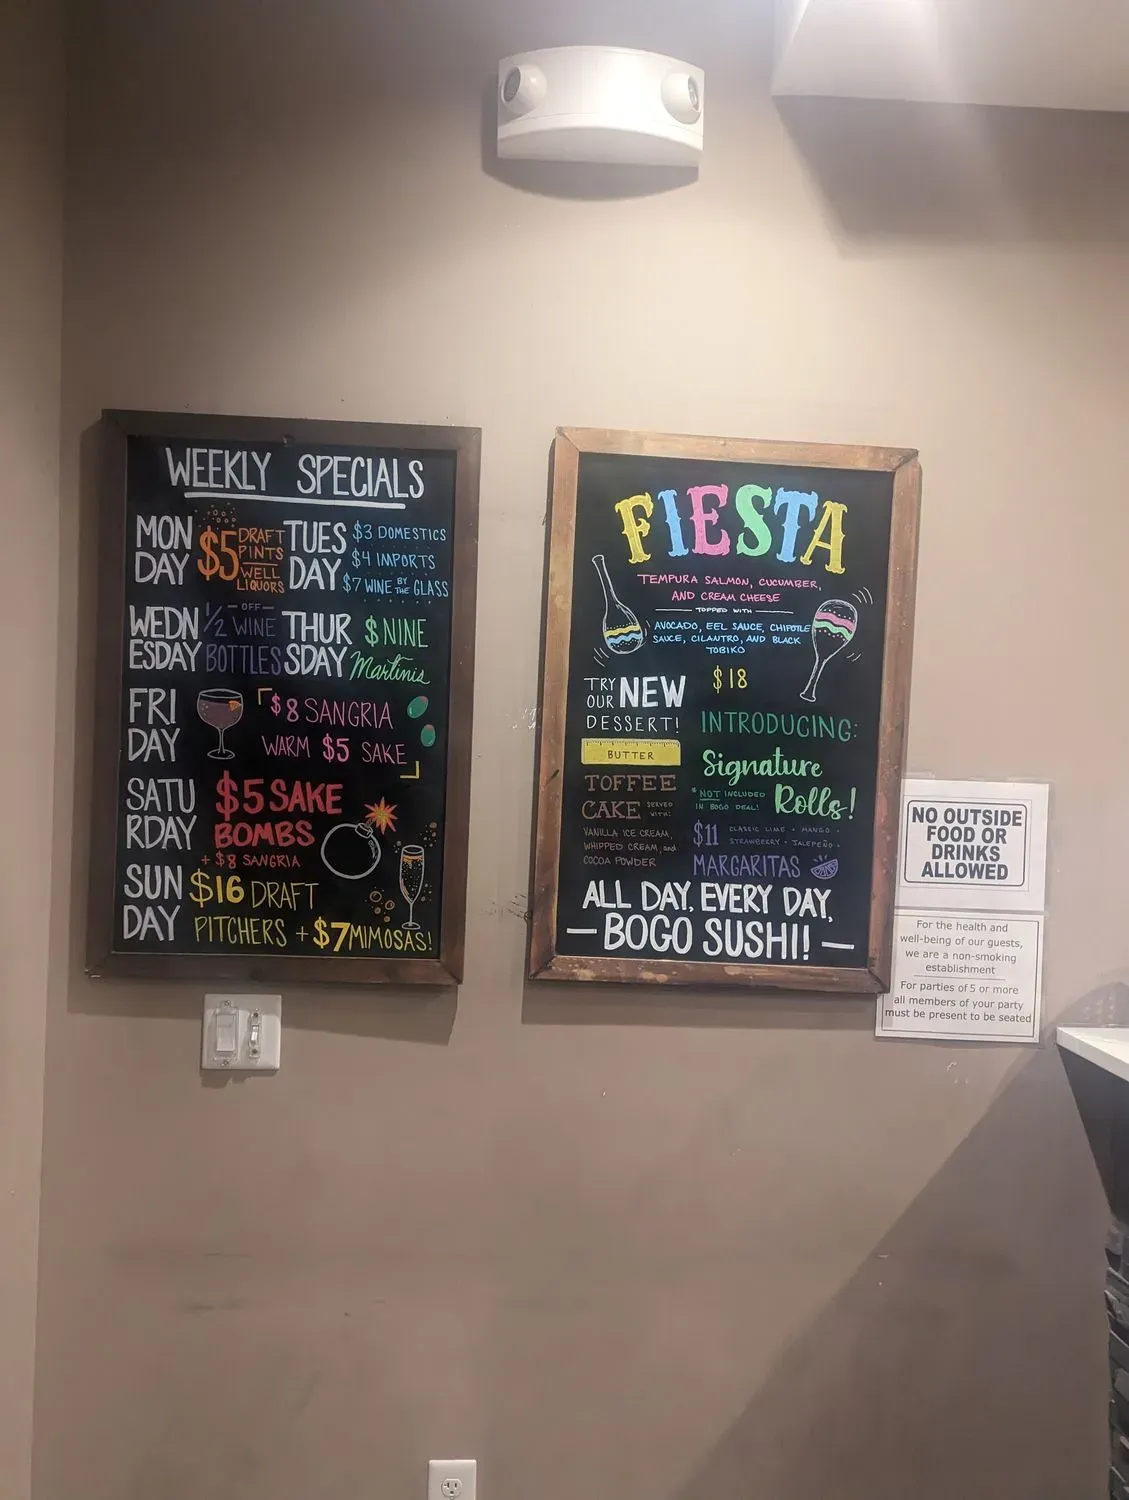 WEEKLY SPECIALS
MON
DAY
$5
DRAFT
PINTS
WELL
LIQUORS
TUES
DAY
$3 DOMESTICS
$4 IMPORTS
$7 WINE BY THE GLASS
WEDN
ESDAY
1/2 OFF
WINE
BOTTLES
THUR
SDAY
$NINE
Martinis
FRI
DAY
$8 SANGRIA
WARM $5 SAKE
SATU
RDAY
$5 SAKE
BOMBS
+ $8 SANGRIA
SUN
DAY
$16 DRAFT
PITCHERS + $7 MIMOSAS!
FIESTA
TEMPURA SALMON, CUCUMBER,
AND CREAM CHEESE
TOPPED WITH
AVOCADO, EEL SAUCE, CHIPOTLE
SAUCE, CILANTRO, AND BLACK
TOBIKO
$18
TRY
OUR NEW
DESSERT!
BUTTER
TOFFEE
CAKE SERVED
WITH:
VANILLA ICE CREAM,
WHIPPED CREAM, and
COCOA POWDER
INTRODUCING:
Signature
Rolls!
*NOT INCLUDED
IN BOGO DEAL!
$11
CLASSIC LIME • MANGO •
STRAWBERRY • JALEPEÑO •
MARGARITAS
ALL DAY, EVERY DAY,
— BOGO SUSHI! —
NO OUTSIDE
FOOD OR
DRINKS
ALLOWED
For the health and
well-being of our guests,
we are a non-smoking
establishment
For parties of 5 or more
all members of your party
must be present to be seated